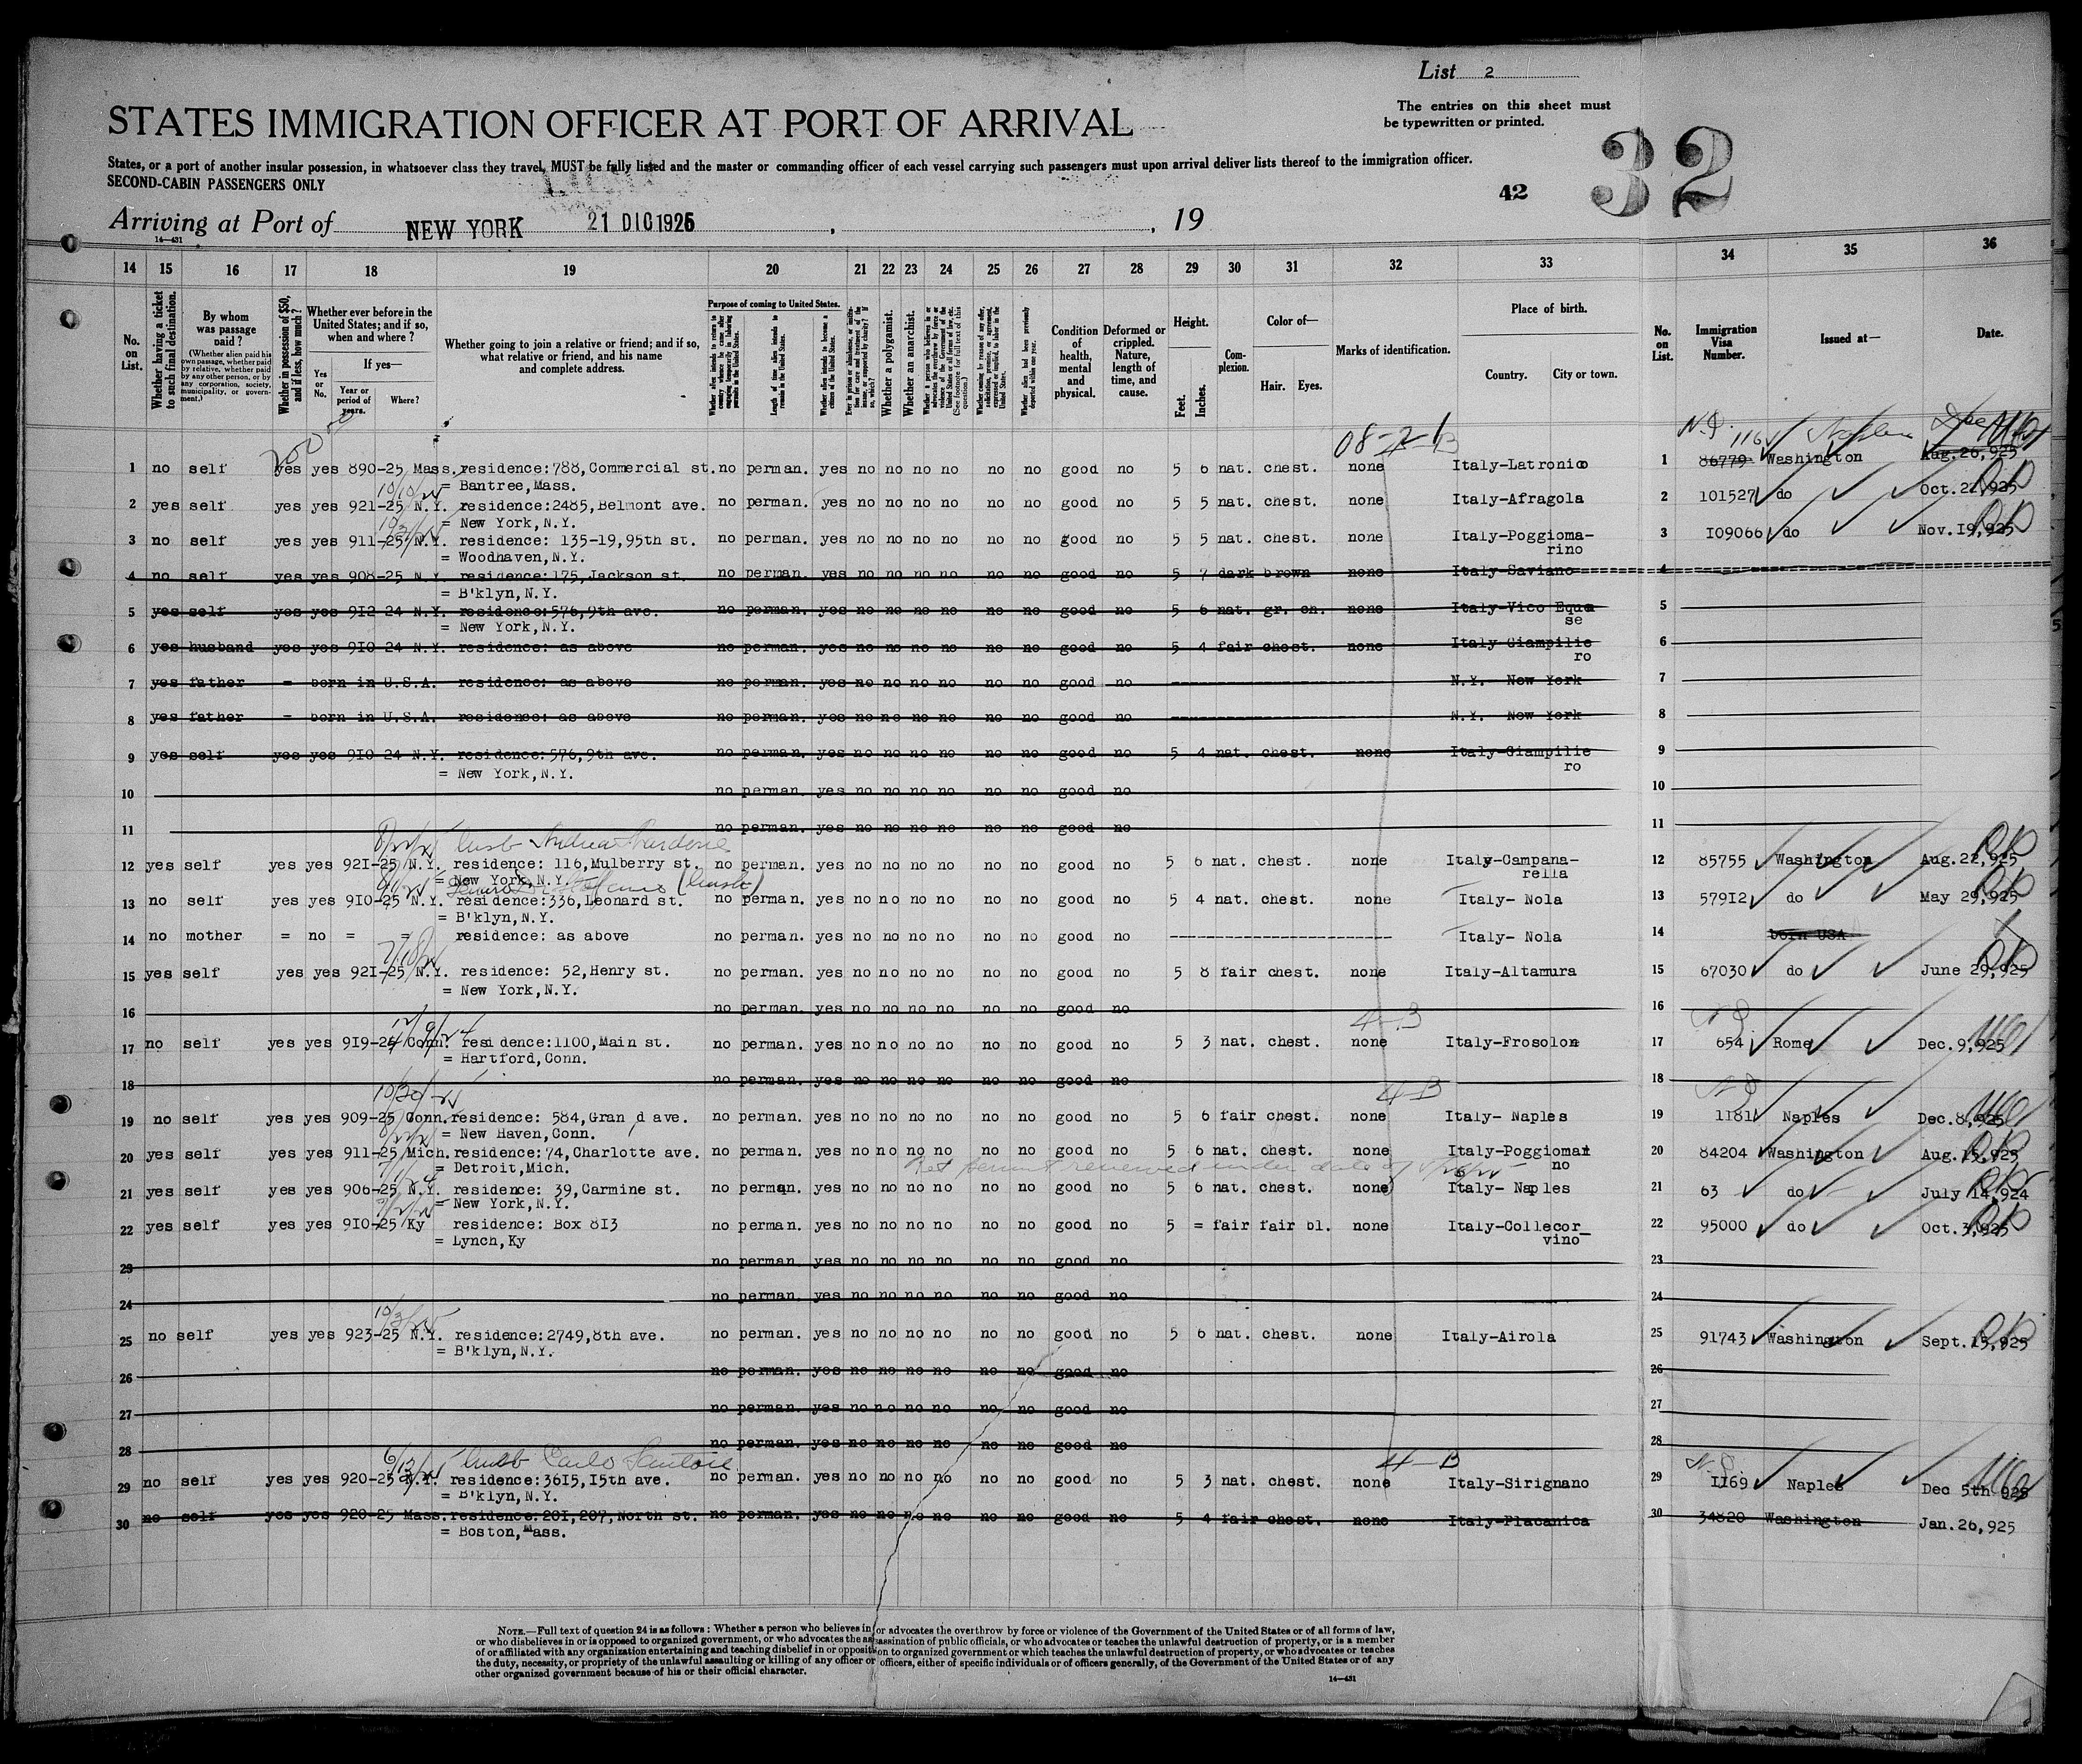 List 2
The entries on this sheet must
be typewritten or printed.
STATES IMMIGRATION OFFICER AT PORT OF ARRIVAL
32
States, or a port of another insular possession, in whatsoever class they travel, MUST be fully listed and the master or commanding officer of each vessel carrying such passengers must upon arrival deliver lists thereof to the immigration officer.
SECOND-CABIN PASSENGERS ONLY
42
Arriving at Port of NEW YORK 21 DIC 1925, , 19
14—431
14 15 16 17 18 19 20 21 22 23 24 25 26 27 28 29 30 31 32 33 34 35 36
No. on List.
Whether having a ticket to such final destination.
By whom was passage paid?
(Whether alien paid his own passage, whether paid by relative, whether paid by any other person, or by any corporation, society, municipality, or government.)
Whether in possession of $50, and if less, how much?
Whether ever before in the United States; and if so, when and where?
Yes or No.
If yes—
Year or period of years.
Where?
Whether going to join a relative or friend; and if so, what relative or friend, and his name and complete address.
Purpose of coming to United States.
Length of time alien intends to remain in the United States.
Whether alien intends to become a citizen of the United States.
Whether a polygamist.
Whether an anarchist.
Condition of health, mental and physical.
Deformed or crippled. Nature, length of time, and cause.
Height.
Feet. Inches.
Complexion.
Color of—
Hair. Eyes.
Marks of identification.
Place of birth.
Country. City or town.
No. on List.
Immigration Visa Number.
Issued at—
Date.
200 08-2-1B N.Q. 116 Naples Dec
1 no self yes yes 890-25 Mass. residence: 788, Commercial st. no perman. yes no no no no no no good no 5 6 nat. chest. none Italy-Latronico 1 86779 Washington Aug. 26, 925
= Bantree, Mass.
2 yes self yes yes 921-25 N.Y. residence: 2485, Belmont ave. no perman. yes no no no no no no good no 5 5 nat. chest. none Italy-Afragola 2 101527 do Oct. 22, 925
= New York, N.Y.
3 no self yes yes 911-25 N.Y. residence: 135-19, 95th st. no perman. yes no no no no no no good no 5 5 nat. chest. none Italy-Poggioma- 3 109066 do Nov. 19, 925
= Woodhaven, N.Y. rino
4 no self yes yes 908-25 N.Y. residence: 175, Jackson st. no perman. yes no no no no no no good no 5 7 dark brown none Italy-Saviano 4
= B'klyn, N.Y.
5 yes self yes yes 912-24 N.Y. residence: 576, 9th ave. no perman. yes no no no no no no good no 5 6 nat. gr. ch. none Italy-Vico Eque 5
= New York, N.Y. se
6 yes husband yes yes 910-24 N.Y. residence: as above no perman. yes no no no no no no good no 5 4 fair chest. none Italy-Giampilie 6
ro
7 yes father - born in U.S.A. residence: as above no perman. yes no no no no no no good no N.Y. New York 7
8 yes father - born in U.S.A. residence: as above no perman. yes no no no no no no good no N.Y. New York 8
9 yes self yes yes 910-24 N.Y. residence: 576, 9th ave. no perman. yes no no no no no no good no 5 4 nat. chest. none Italy-Giampilie 9
= New York, N.Y. ro
10 no perman. yes no no no no no no good no 10
11 no perman. yes no no no no no no good no 11
husb Andrea
12 yes self yes yes 921-25 N.Y. residence: 116, Mulberry st. no perman. yes no no no no no no good no 5 6 nat. chest. none Italy-Campana- 12 85755 Washington Aug. 22, 925
= New York, N.Y. rella
(husb)
13 no self yes yes 910-25 N.Y. residence: 336, Leonard st. no perman. yes no no no no no no good no 5 4 nat. chest. none Italy- Nola 13 57912 do May 29, 925
= B'klyn, N.Y.
14 no mother = no = = residence: as above no perman. yes no no no no no no good no Italy- Nola 14 born USA
15 yes self yes yes 921-25 N.Y. residence: 52, Henry st. no perman. yes no no no no no no good no 5 8 fair chest. none Italy-Altamura 15 67030 do June 29, 925
= New York, N.Y.
16 no perman. yes no no no no no no good no 16
12/9/24 4-B
17 no self yes yes 919-24 Conn. residence: 1100, Main st. no perman. yes no no no no no no good no 5 3 nat. chest. none Italy-Frosolone 17 654 Rome Dec. 9, 925
= Hartford, Conn.
18 no perman. yes no no no no no no good no 18
4-B
19 no self yes yes 909-25 Conn. residence: 584, Grand ave. no perman. yes no no no no no no good no 5 6 fair chest. none Italy- Naples 19 1181 Naples Dec. 8, 925
= New Haven, Conn.
20 yes self yes yes 911-25 Mich. residence: 74, Charlotte ave. no perman. yes no no no no no no good no 5 6 nat. chest. none Italy-Poggiomari 20 84204 Washington Aug. 15, 925
= Detroit, Mich. no
Ret permit renewed under date of
21 yes self yes yes 906-25 N.Y. residence: 39, Carmine st. no perman. yes no no no no no no good no 5 6 nat. chest. none Italy- Naples 21 63 do July 14, 924
= New York, N.Y.
22 yes self yes yes 910-25 Ky residence: Box 813 no perman. yes no no no no no no good no 5 = fair fair bl. none Italy-Collecor 22 95000 do Oct. 3, 925
= Lynch, Ky vino
23 no perman. yes no no no no no no good no 23
24 no perman. yes no no no no no no good no 24
25 no self yes yes 923-25 N.Y. residence: 2749, 8th ave. no perman. yes no no no no no no good no 5 6 nat. chest. none Italy-Airola 25 91743 Washington Sept. 15, 925
= B'klyn, N.Y.
26 no perman. yes no no no no no no good no 26
27 no perman. yes no no no no no no good no 27
28 no perman. yes no no no no no no good no 28
husb Carlo 4-B
29 no self yes yes 920-25 N.Y. residence: 3615, 15th ave. no perman. yes no no no no no no good no 5 3 nat. chest. none Italy-Sirignano 29 1169 Naples Dec 5th 925
= B'klyn, N.Y.
30 no self yes yes 920-25 Mass. residence: 201, 207, North st. no perman. yes no no no no no no good no 5 4 fair chest. none Italy-Placanica 30 34820 Washington Jan. 26, 925
= Boston, Mass.
NOTE.—Full text of question 24 is as follows: Whether a person who believes in or advocates the overthrow by force or violence of the Government of the United States or of all forms of law,
or who disbelieves in or is opposed to organized government, or who advocates the assassination of public officials, or who advocates or teaches the unlawful destruction of property, or is a member
of or affiliated with any organization entertaining and teaching disbelief in or opposition to organized government or which teaches the unlawful destruction of property, or who advocates or teaches
the duty, necessity, or propriety of the unlawful assaulting or killing of any officer or officers, either of specific individuals or of officers generally, of the Government of the United States or of any
other organized government because of his or their official character.
14—431